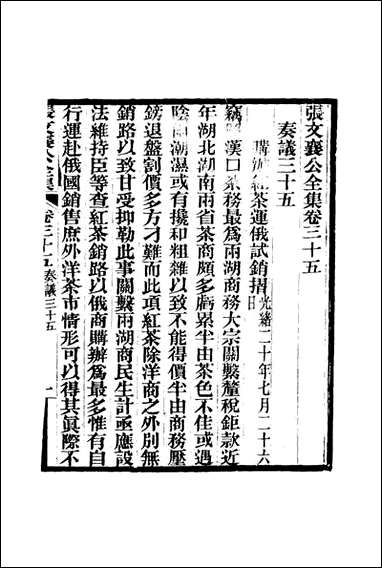 張文襄公全集卷三十五
奏議三十五
購辦紅茶運俄試銷摺光緒二十年七月二十六日
竊照漢口茶務最爲兩湖商務大宗關繫釐稅鉅款近
年湖北湖南兩省茶商頗多虧累半由茶色不佳或遇
陰雨潮濕或有攙和粗雜以致不能得價半由商務壓
鎊退盤割價多方刁難而此項紅茶除洋商之外別無
銷路以致甘受抑勒此事關繫兩湖商民生計亟應設
法維持臣等查紅茶銷路以俄商購辦爲最多惟有自
行運赴俄國銷售庶外洋茶市情形可以得其眞際不
張文襄公全集 卷三十五 奏議三十五 一